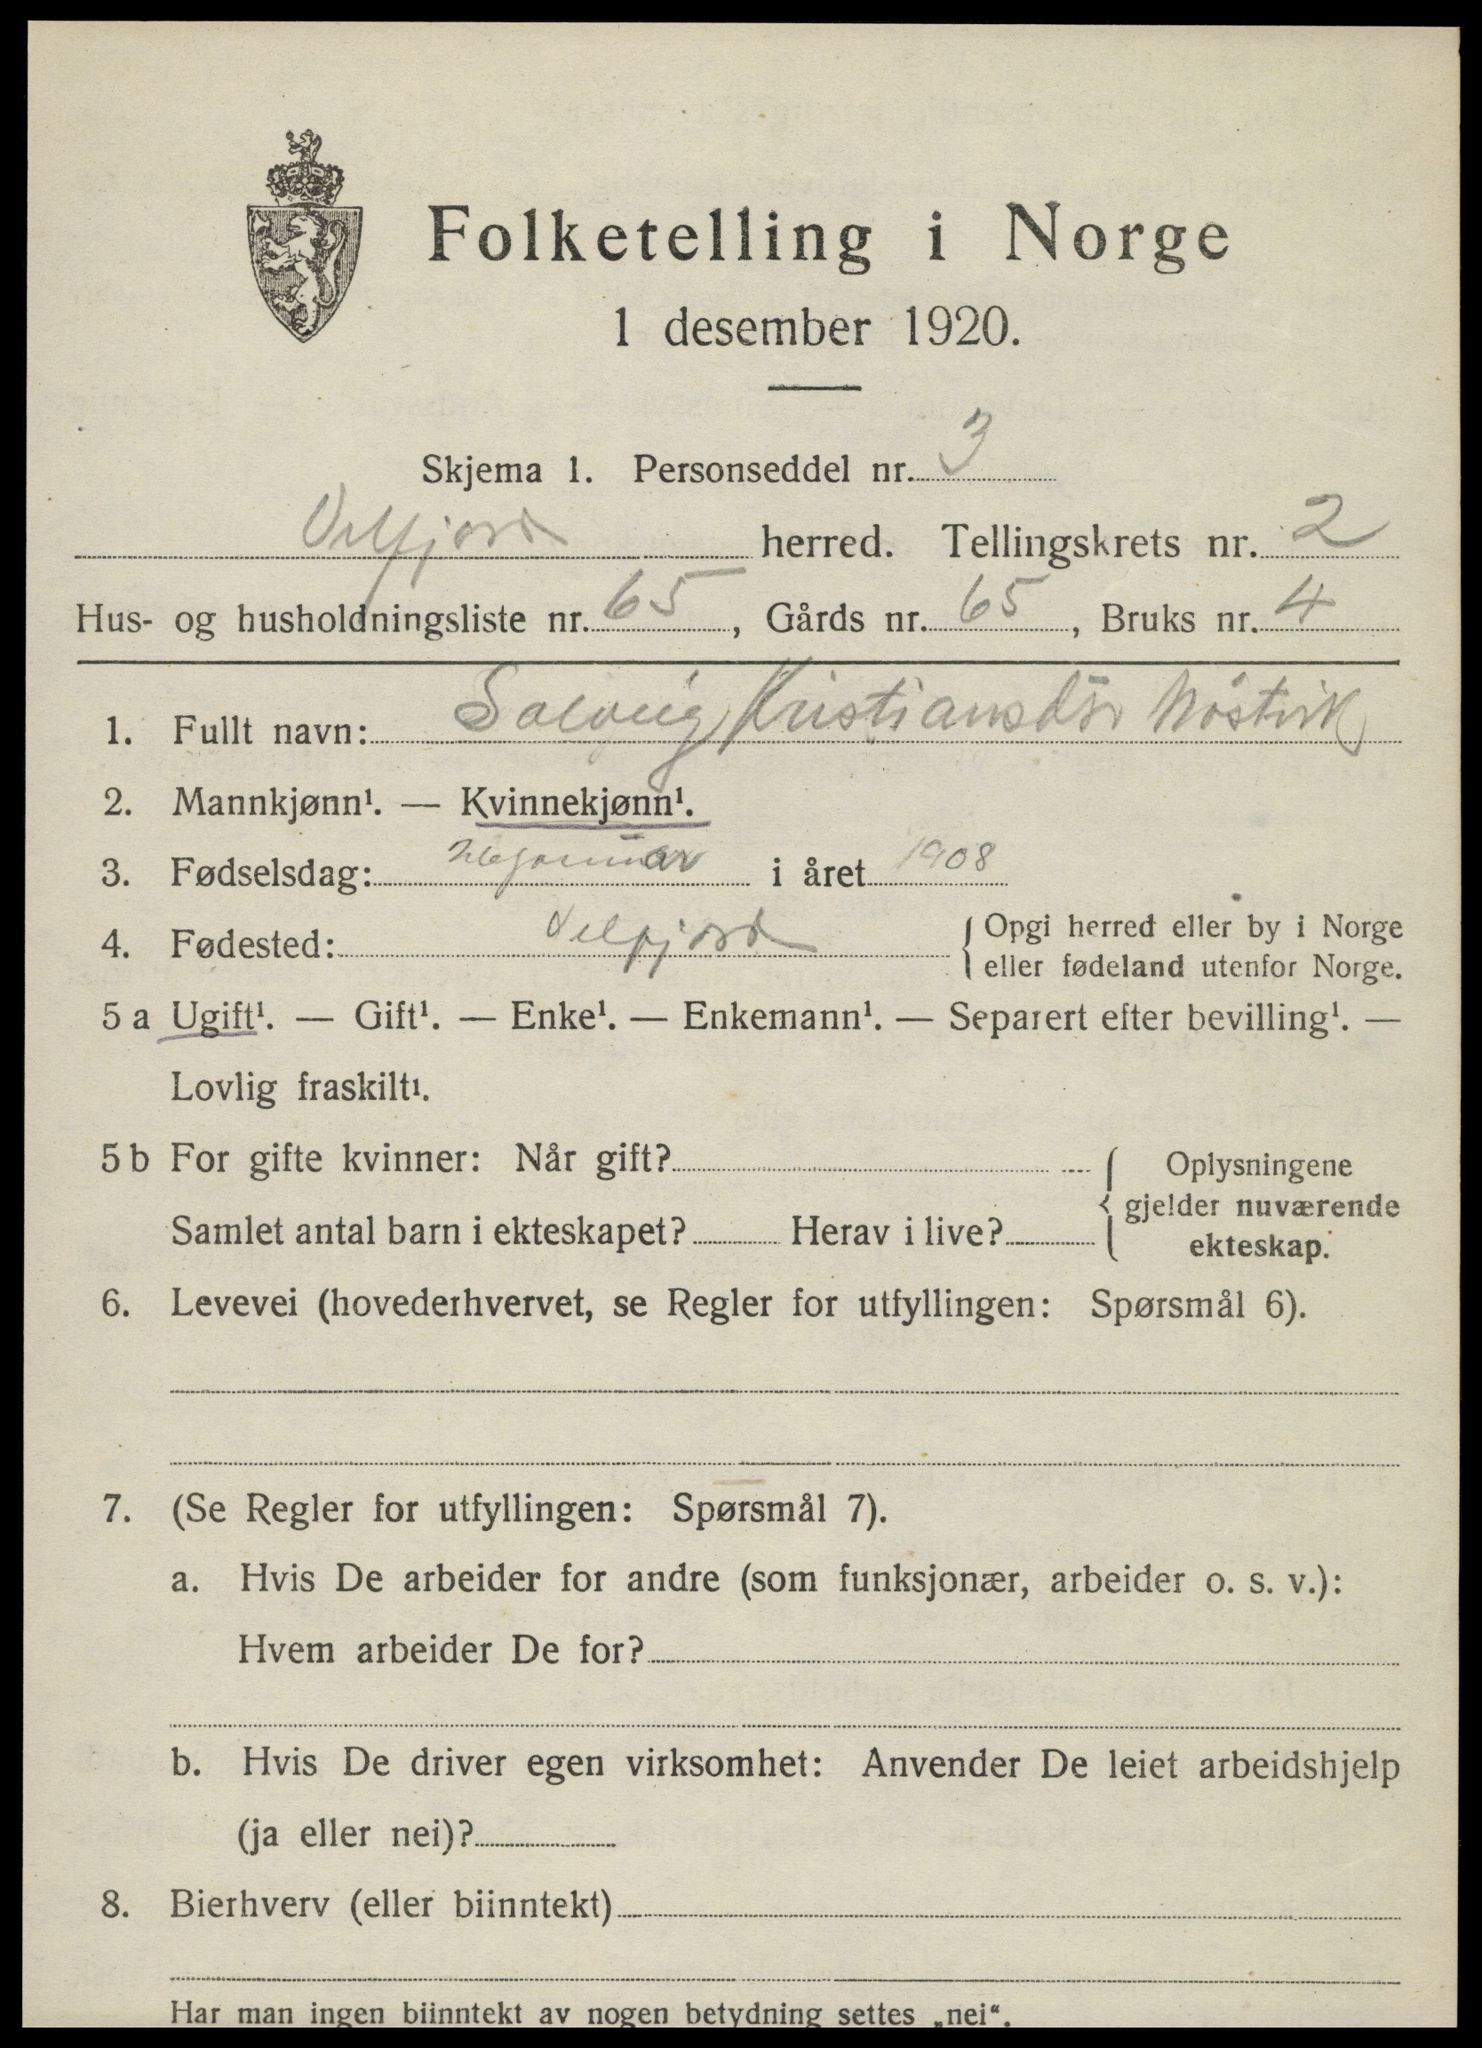 Folketelling i Norge
1 desember 1920.
Skjema 1. Personseddel nr. 3
Velfjord herred. Tellingskrets nr. 2
Hus- og husholdningsliste nr. 65, Gårds nr. 65, Bruks nr. 4
1. Fullt navn: Solveig Kristiansdtr Nöstvik
2. Mannkjønn¹. — Kvinnekjønn¹.
3. Fødselsdag: januar i året 1908
4. Fødested: Velfjord { Opgi herred eller by i Norge
eller fødeland utenfor Norge.
5 a Ugift¹. — Gift¹. — Enke¹. — Enkemann¹. — Separert efter bevilling¹. —
Lovlig fraskilt¹.
5 b For gifte kvinner: Når gift? { Oplysningene
gjelder nuværende
ekteskap.
Samlet antal barn i ekteskapet? Herav i live?
6. Levevei (hovederhvervet, se Regler for utfyllingen: Spørsmål 6).
7. (Se Regler for utfyllingen: Spørsmål 7).
a. Hvis De arbeider for andre (som funksjonær, arbeider o. s. v.):
Hvem arbeider De for?
b. Hvis De driver egen virksomhet: Anvender De leiet arbeidshjelp
(ja eller nei)?
8. Bierhverv (eller biinntekt)
Har man ingen biinntekt av nogen betydning settes „nei“.